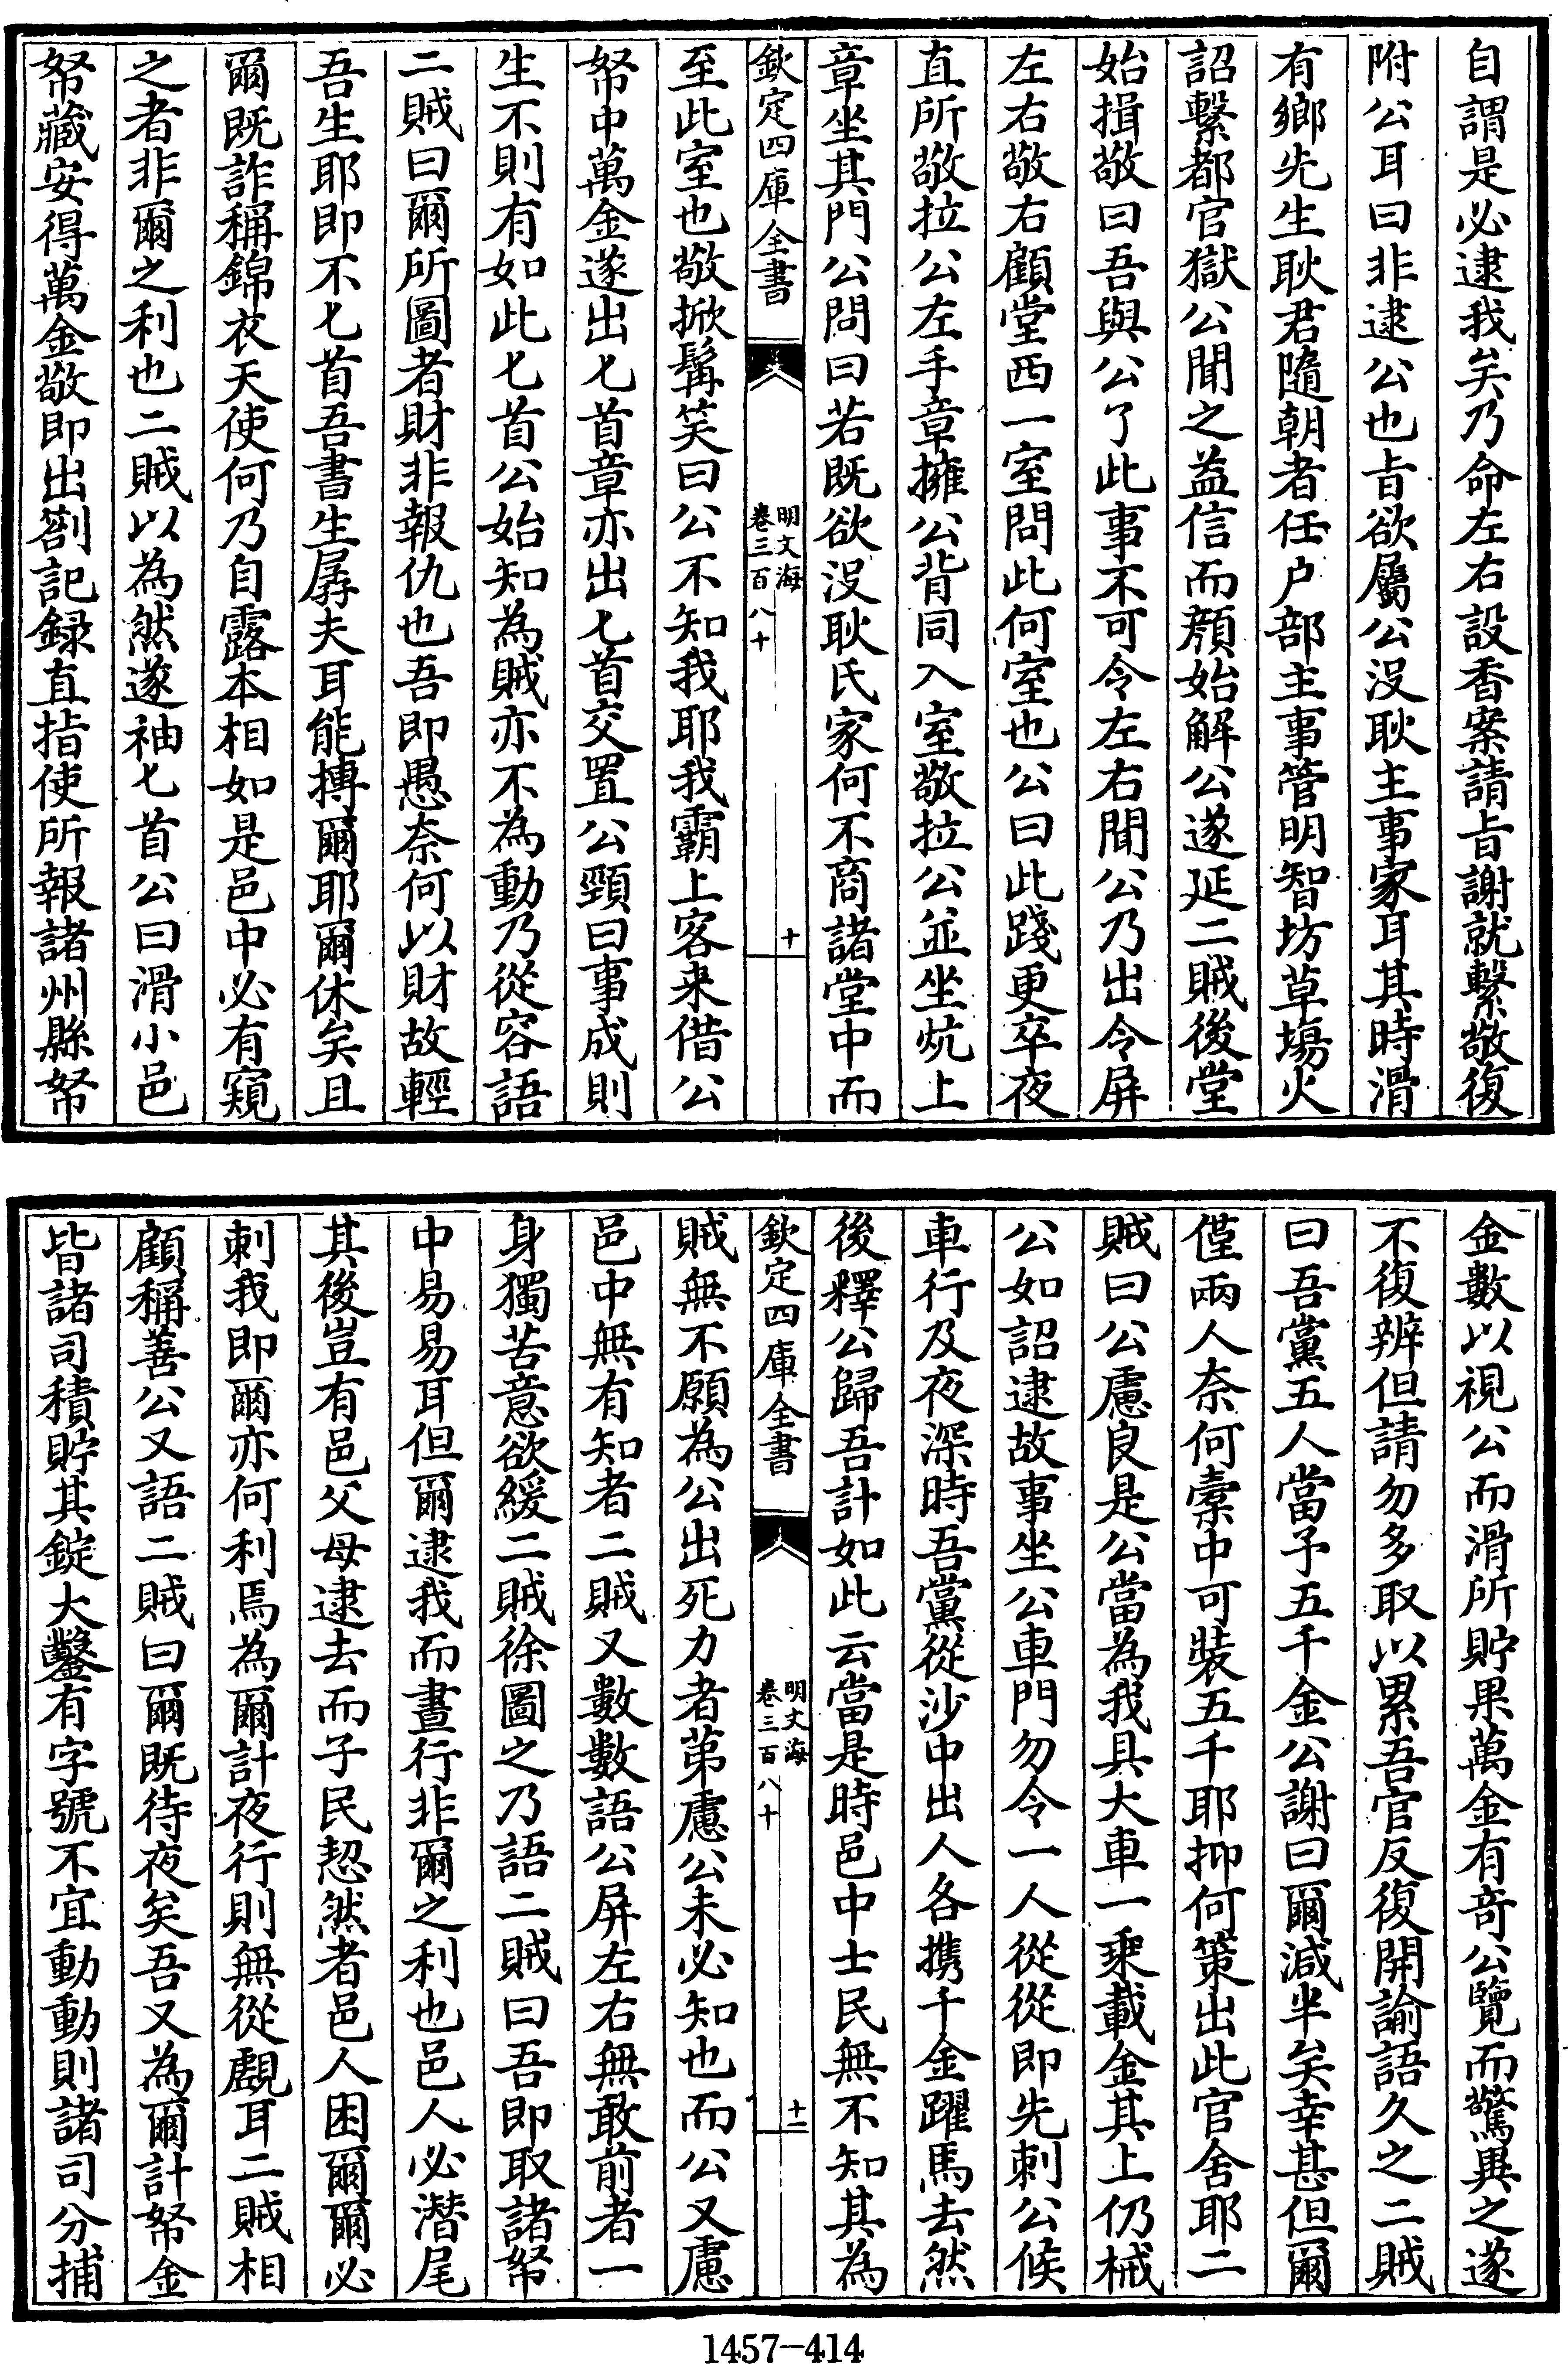 自謂是必逮我矣乃命左右設香案請㫖謝就繫敬復
附公耳曰非逮公也㫖欲屬公没耿主事家耳其時滑
有鄉先生耿君隨朝者任户部主事管明智坊草場火
詔繫都官獄公聞之益信而顔始解公遂延二賊後堂
始揖敬曰吾與公了此事不可令左右聞公乃出令屏
左右敬右顧堂西一室問此何室也公曰此踐更卒夜
直所敬拉公左手章擁公背同入室敬拉公並坐炕上
章坐其門公問曰若既欲没耿氏家何不商諸堂中而
欽定四庫全書
明文海
卷三百八十
十
至此室也敬掀髯笑曰公不知我耶我霸上客来借公
帑中萬金遂出匕首章亦出匕首交置公頸曰事成則
生不則有如此匕首公始知為賊亦不為動乃從容語
二賊曰爾所圖者財非報仇也吾即愚奈何以財故輕
吾生耶即不匕首吾書生孱夫耳能搏爾耶爾休矣且
爾既詐稱錦衣天使何乃自露本相如是邑中必有窺
之者非爾之利也二賊以為然遂袖匕首公曰滑小邑
帑藏安得萬金敬即出劄記録直指使所報諸州縣帑
金數以視公而滑所貯果萬金有竒公覽而驚異之遂
不復辨但請勿多取以累吾官反復開諭語久之二賊
曰吾黨五人當予五千金公謝曰爾減半矣幸甚但爾
僅兩人奈何橐中可裝五千耶抑何策出此官舍耶二
賊曰公慮良是公當為我具大車一乘載金其上仍械
公如詔逮故事坐公車門勿令一人從從即先刺公候
車行及夜深時吾黨從沙中出人各携千金躍馬去然
後釋公歸吾計如此云當是時邑中士民無不知其為
欽定四庫全書
明文海
卷三百八十
十一
賊無不願為公出死力者苐慮公未必知也而公又慮
邑中無有知者二賊又數數語公屏左右無敢前者一
身獨苦意欲緩二賊徐圖之乃語二賊曰吾即取諸帑
中易易耳但爾逮我而晝行非爾之利也邑人必潛尾
其後豈有邑父母逮去而子民恝然者邑人困爾爾必
刺我即爾亦何利焉為爾計夜行則無從覷耳二賊相
顧稱善公又語二賊曰爾既待夜矣吾又為爾計帑金
皆諸司積貯其錠大鑿有字號不宜動動則諸司分捕
1457-414